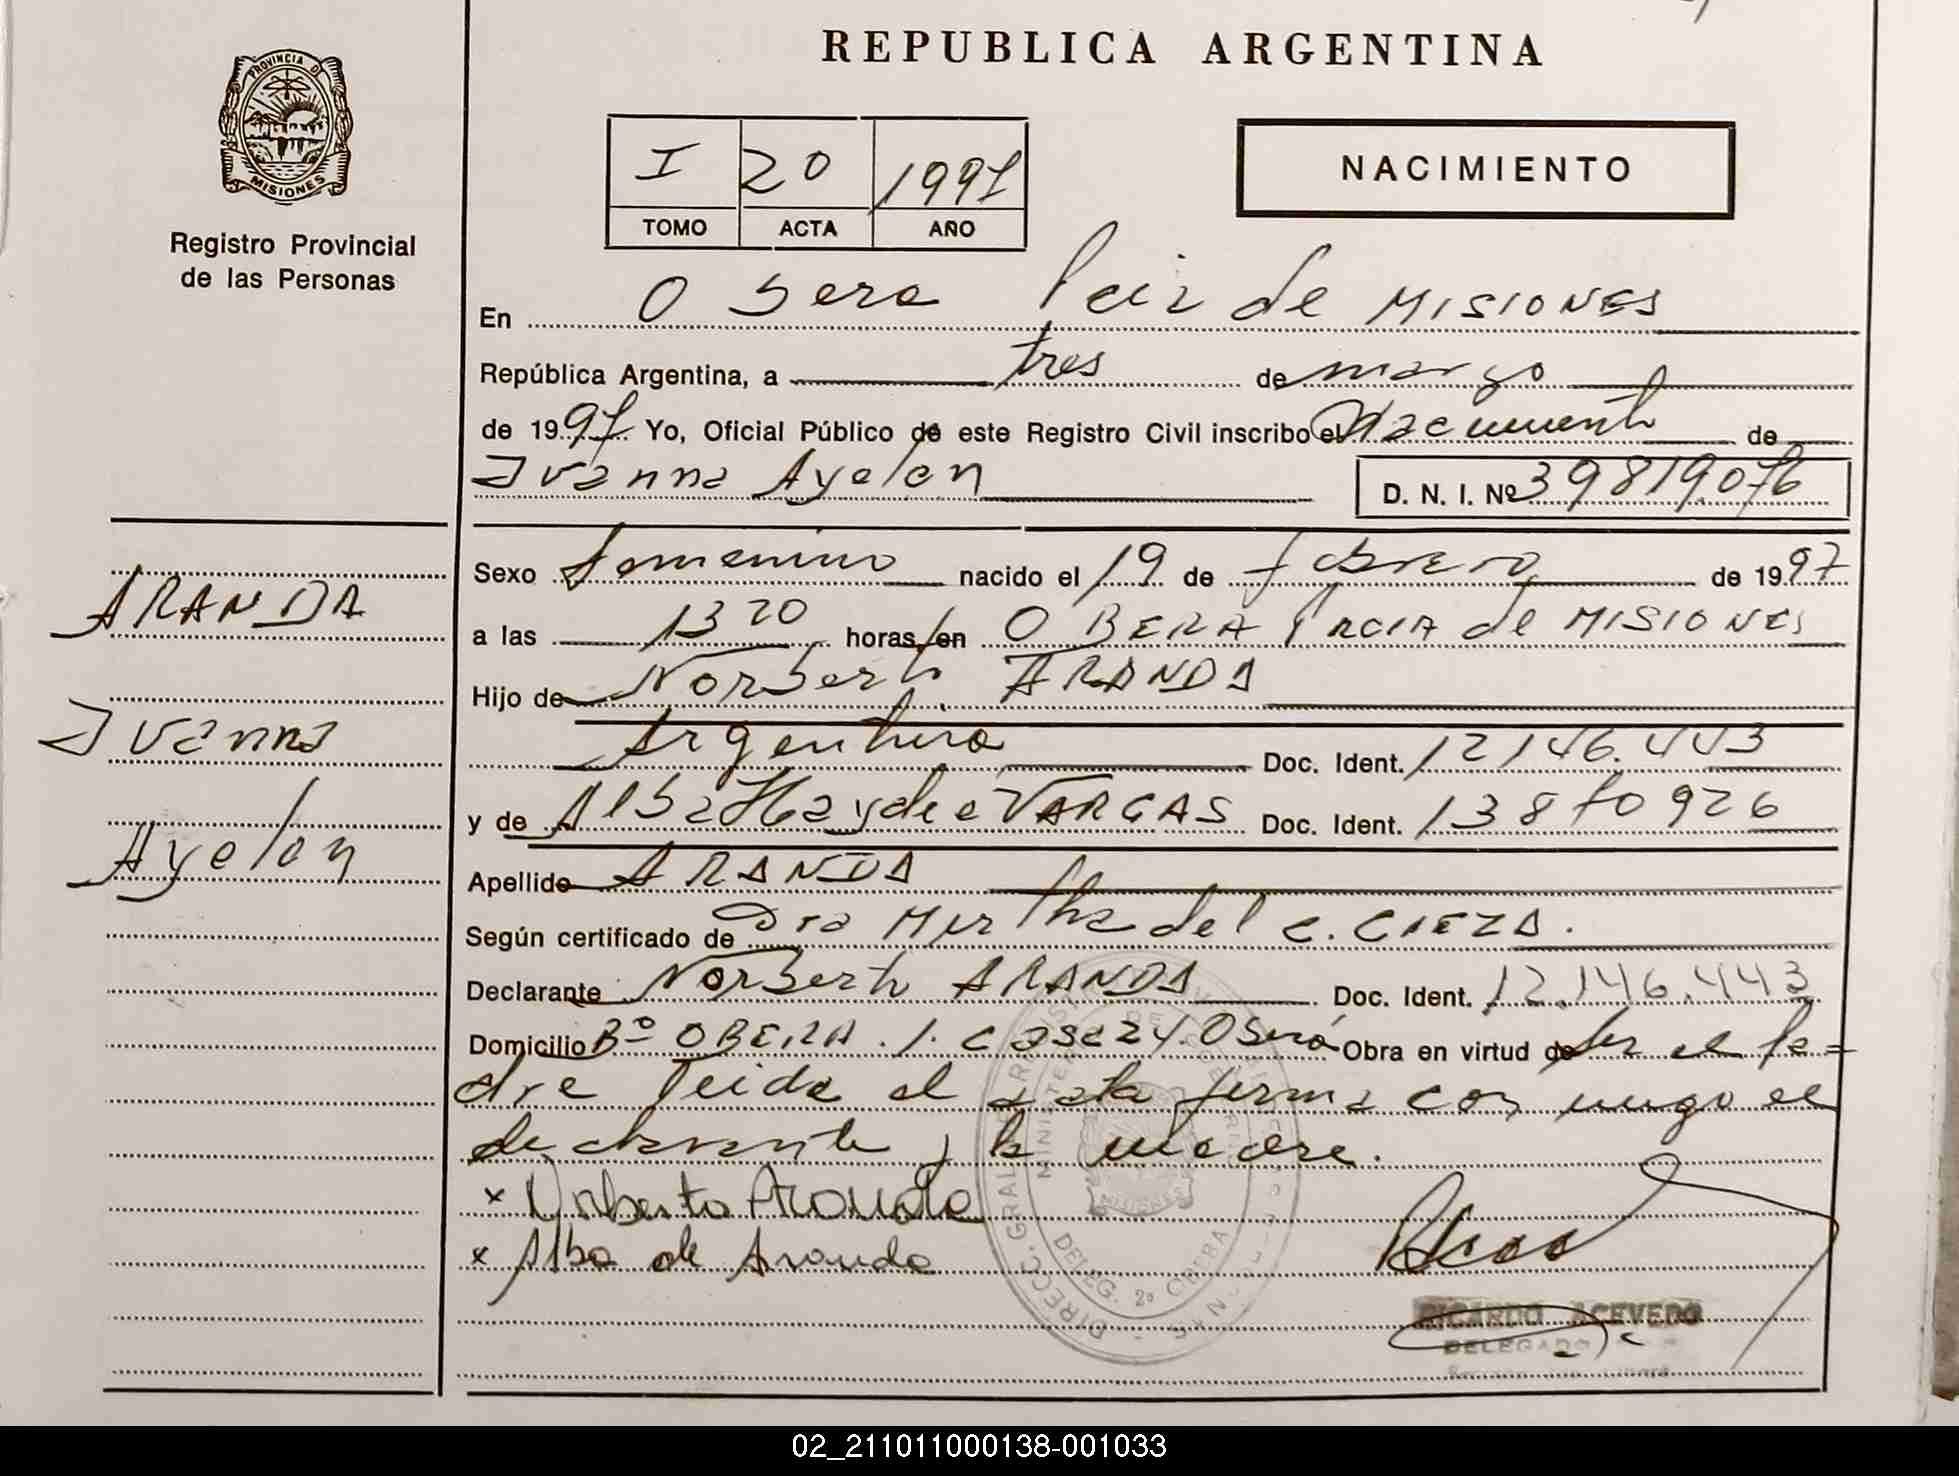 REPUBLICA ARGENTINA
PROVINCIA D
MISIONES
Registro Provincial
de las Personas
I 20 1997
TOMO ACTA AÑO
NACIMIENTO
En Obera Pcia de MISIONES
República Argentina, a tres de marzo
de 1997 Yo, Oficial Público de este Registro Civil inscribo el Nacimiento de
Ivanna Ayelen D. N. I. Nº 39819.076
Sexo femenino nacido el 19 de febrero de 1997
a las 13 20 horas, en OBERA Prcia de MISIONES
Hijo de Norberto ARANDA
Argentina Doc. Ident. 12146.443
y de Alba Haydee VARGAS Doc. Ident. 13870926
Apellido ARANDA
Según certificado de Dra Mirtha del C. CIEZA.
Declarante Norberto ARANDA Doc. Ident. 12.146.443
Domicilio Bº OBERA . 1. Casa 24. Oberá Obra en virtud de ser el pa=
dre leida el acta firma con migo el
declarante y la madre.
x Norberto Aranda
x Alba de Aranda
ARANDA
Ivanna
Ayelen
DIRECC. GRAL.
DELEG. 2º OBERA
MISIONES
RICARDO ACEVEDO
DELEGADO
02_211011000138-001033